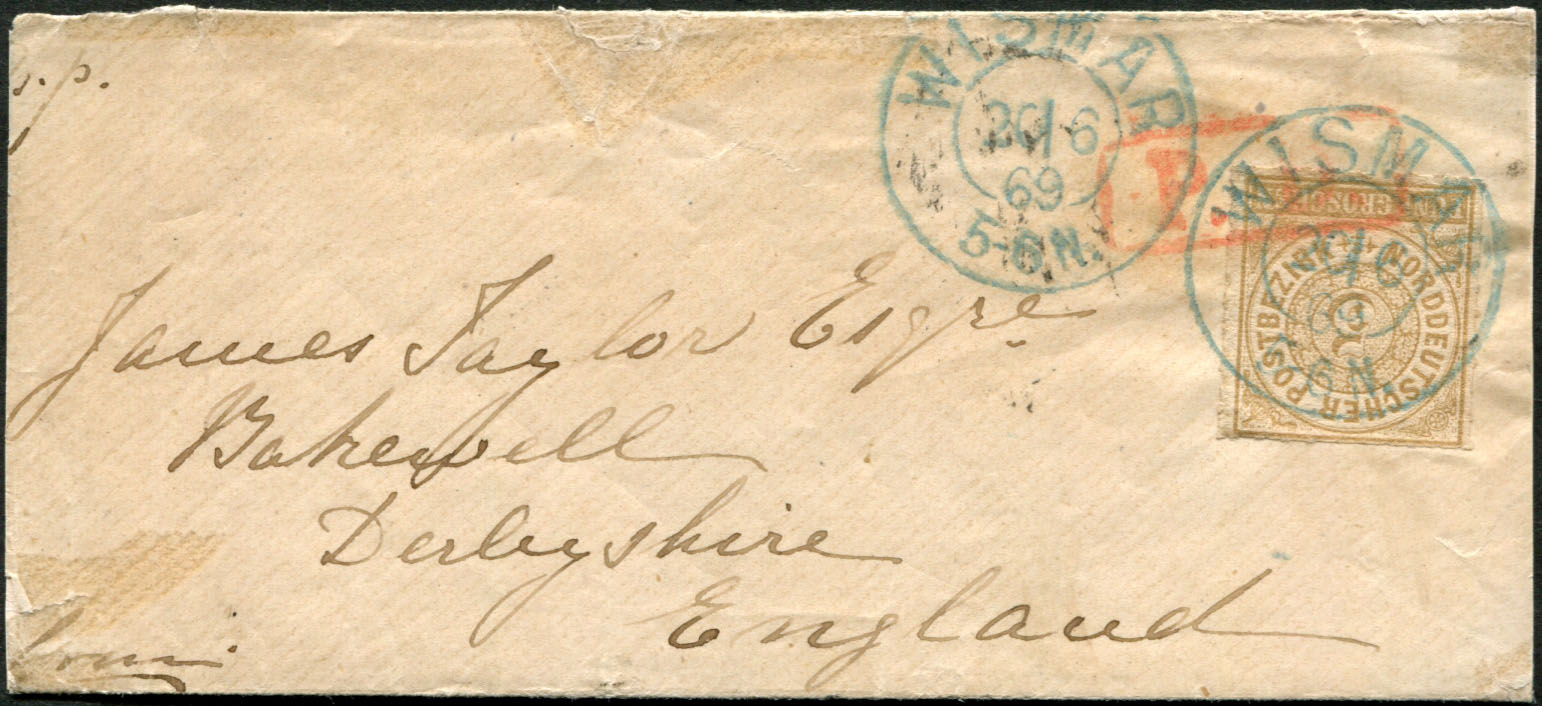 WISMAR
20/6
69
5-6.N.
P.
WISMAR
20/6
69
6 N
GROSCHEN
NORDDEUTSCHER POSTBEZIRK
James Taylor Esqre.
Bakewell
Derbyshire
England